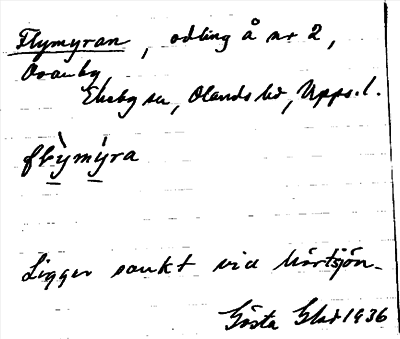 Flymyran, odling å nr 2,
Ovanby,
Ekeby sn, Olands hd, Upps. l.
flỳmýra
Ligger sankt vid Mörtsjön.
Gösta Glad 1936